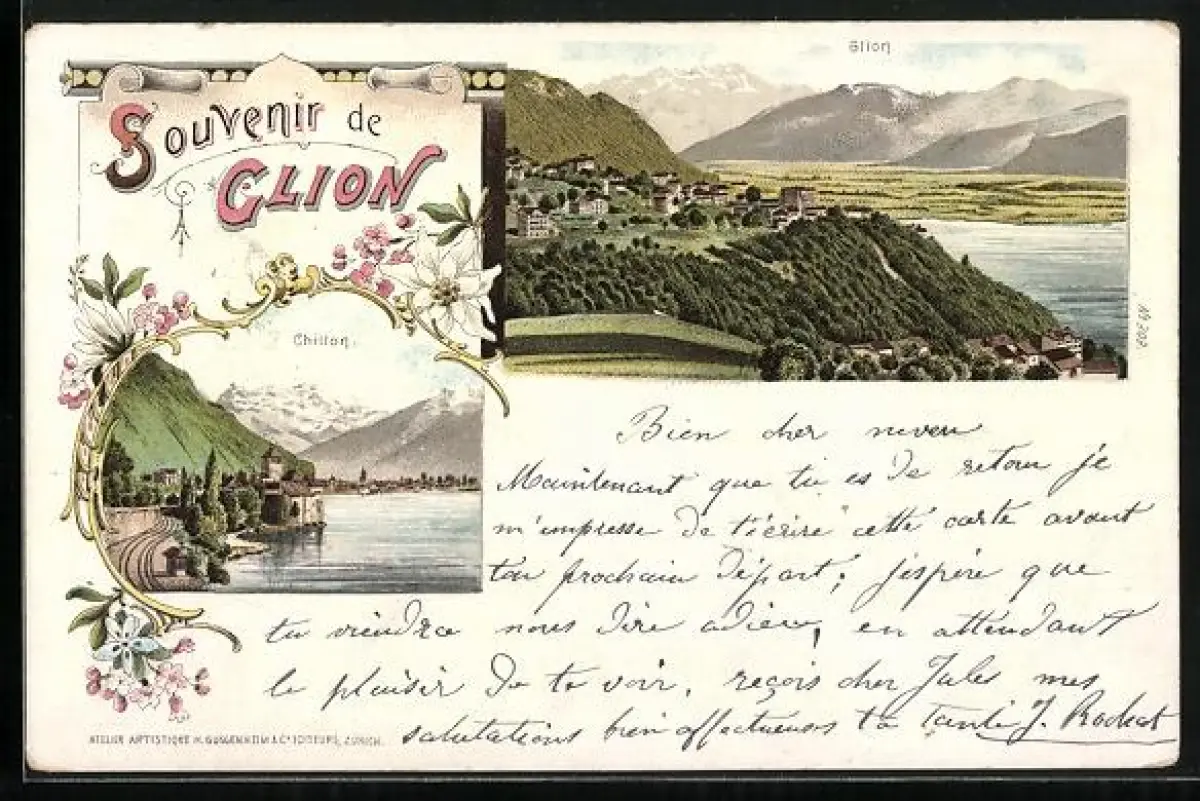 Souvenir de
GLION
Glion
Chillon.
No 202.
Bien cher neveu
Maintenant que tu es de retour je
m'empresse de t'écrire cette carte avant
ton prochain départ; j'espère que
tu viendra nous dire adieu, en attendant
le plaisir de te voir, reçois cher Jules mes
salutations bien affectueuses ta tante J. Rochat
ATELIER ARTISTIQUE H. GUGGENHEIM & Cie EDITEURS, ZURICH.